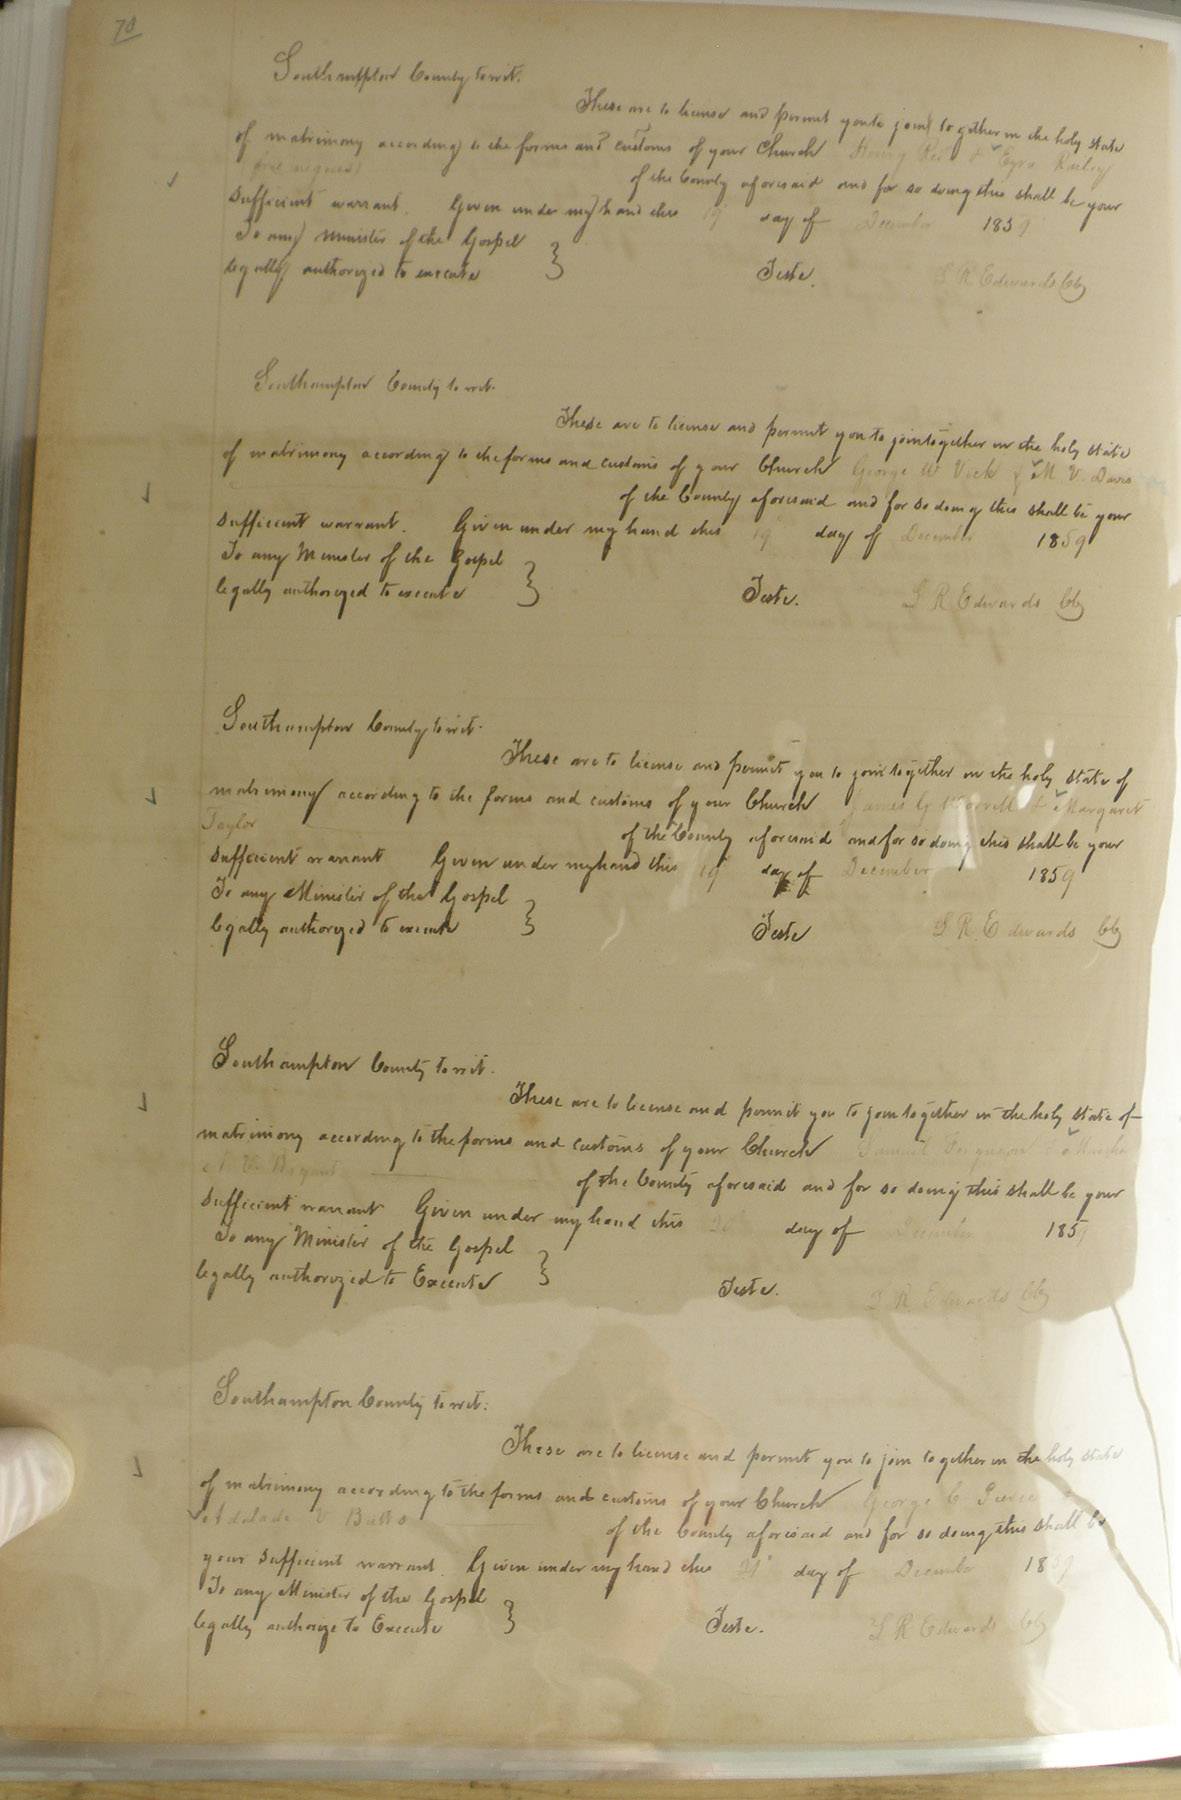 70
Southampton County to wit.
These are to license and permit you to join together in the holy state
of matrimony according to the forms and customs of your Church Henry &
of the County aforesaid and for so doing this shall be your
sufficient warrant. Given under my hand this 19 day of December 1859
To any Minister of the Gospel
legally authorized to execute } Teste. S R Edwards
Southampton County to wit.
These are to license and permit you to join together in the holy state
of matrimony according to the forms and customs of your Church George W Vick & M V. Davis
of the County aforesaid and for so doing this shall be your
sufficient warrant. Given under my hand this 19 day of December 1859
To any Minister of the Gospel
legally authorized to execute } Teste. S R Edwards
Southampton County to wit.
These are to license and permit you to join together in the holy state of
matrimony according to the forms and customs of your Church James G Worrell & Margaret
Taylor of the County aforesaid and for so doing this shall be your
sufficient warrant Given under my hand this 19 day of December 1859
To any Minister of the Gospel
legally authorized to execute } Teste S R Edwards
Southampton County to wit.
These are to license and permit you to join together in the holy state of
matrimony according to the forms and customs of your Church Samuel
Bryant of the County aforesaid and for so doing this shall be your
sufficient warrant Given under my hand this day of December 1859
To any Minister of the Gospel
legally authorized to Execute } Teste. S R Edwards
Southampton County to wit.
These are to license and permit you to join together in the holy state
of matrimony according to the forms and customs of your Church George C
Butts of the County aforesaid and for so doing this shall be
your sufficient warrant. Given under my hand this 21 day of December 1859
To any Minister of the Gospel
legally authorize to Execute } Teste. S R Edwards